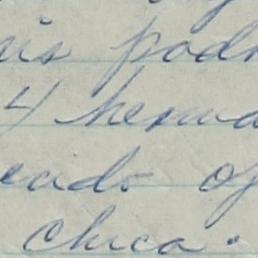 is padr
4 herma
eado of
chica.